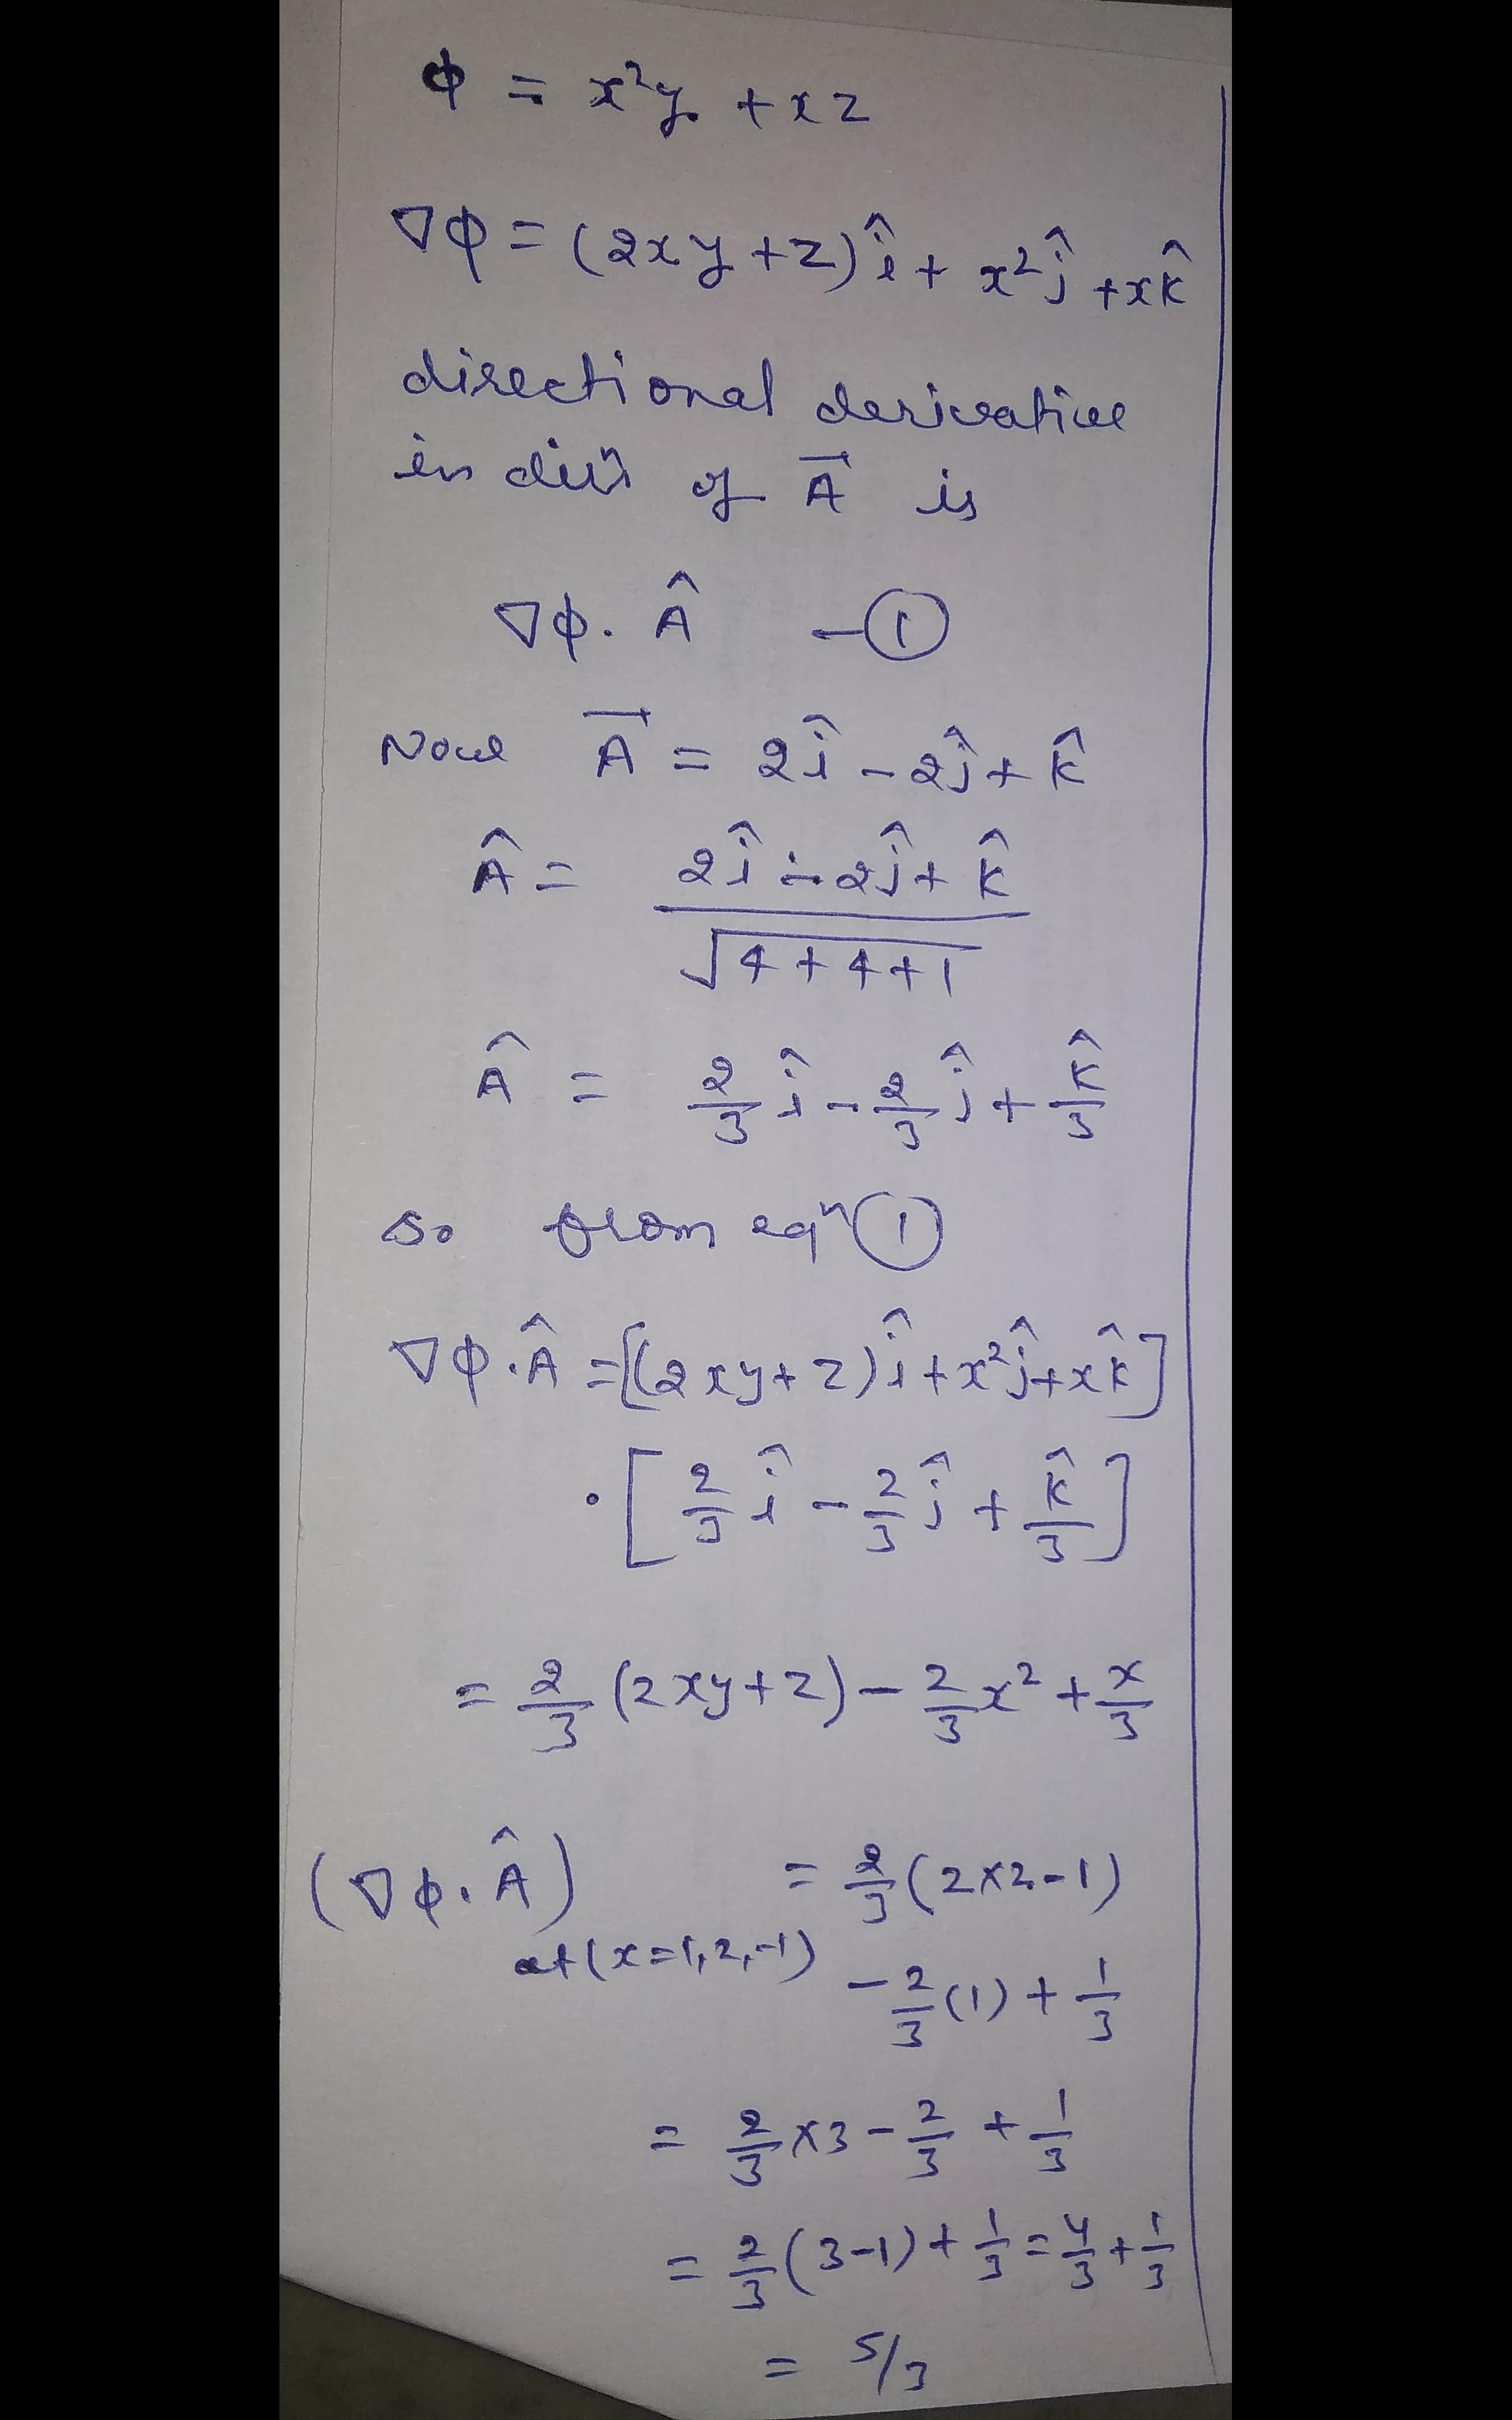 ϕ = x²y + xz
∇ϕ = (2xy + z)î + x²ĵ + xk̂
directional derivative
in dirⁿ of A⃗ is
∇ϕ. Â —①
Now A⃗ = 2î - 2ĵ + k̂
Â = (2î - 2ĵ + k̂)/√(4+4+1)
Â = 2/3 î - 2/3 ĵ + k̂/3
so from eqⁿ ①
∇ϕ.Â = [(2xy+z)î + x²ĵ + xk̂]
. [2/3 î - 2/3 ĵ + k̂/3]
= 2/3 (2xy+z) - 2/3 x² + x/3
(∇ϕ.Â) at (x=1,2,-1) = 2/3 (2×2-1)
- 2/3 (1) + 1/3
= 2/3 ×3 - 2/3 + 1/3
= 2/3 (3-1) + 1/3 = 4/3 + 1/3
= 5/3